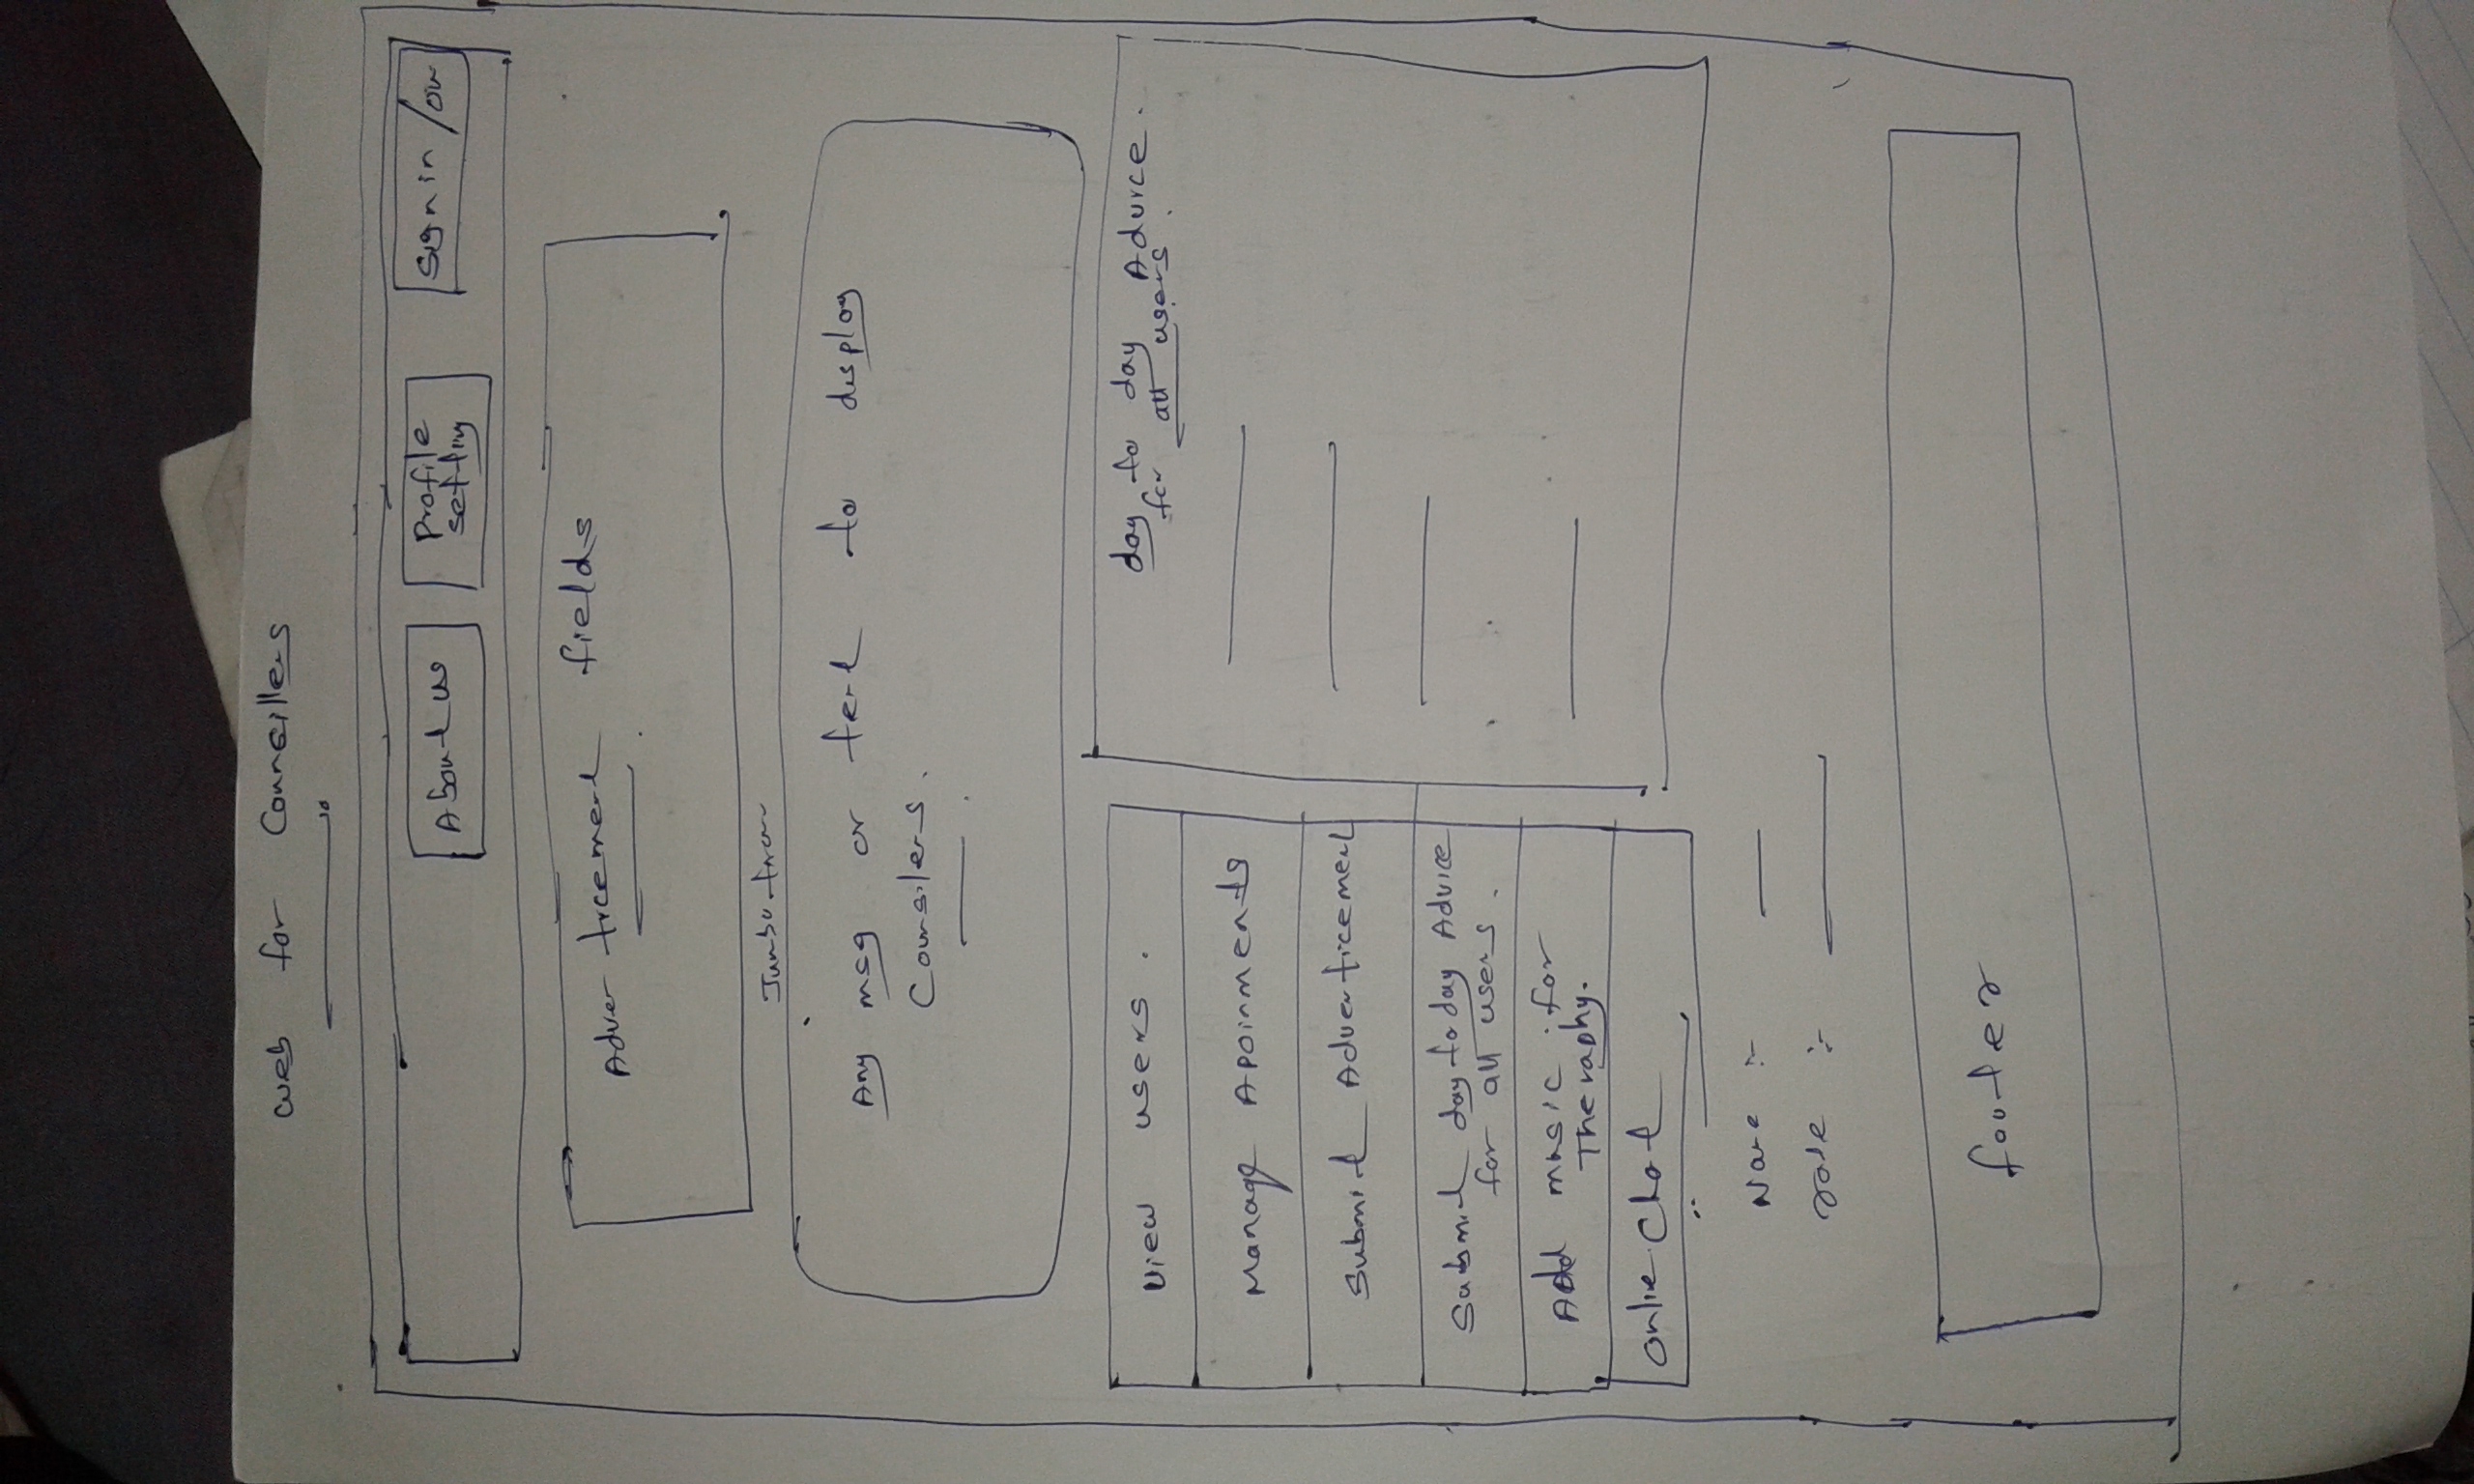 web for Counsillers
About us
Profile
setting
Sign in / out
Adverticement fields
Jumbotron
Any msg or text to display
Counsilers.
View users.
Manage Apoinments
Submit Adverticement
Submit day to day Advice
for all users.
Add music for
Theraphy.
Online Chat
day to day Advice.
for all users.
Name :-
role :-
footer